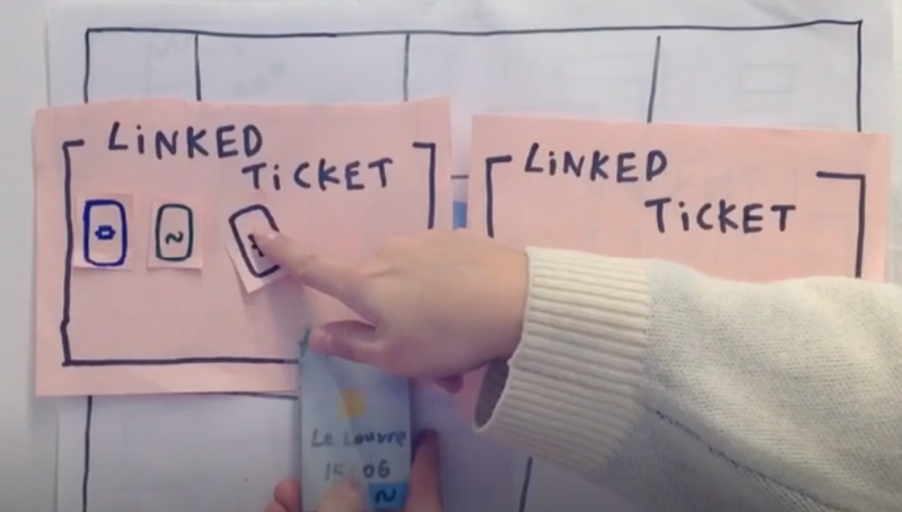 LiNKED
TiCKET
LiNKED
TiCKET
~
Le Louvre
15:06
~